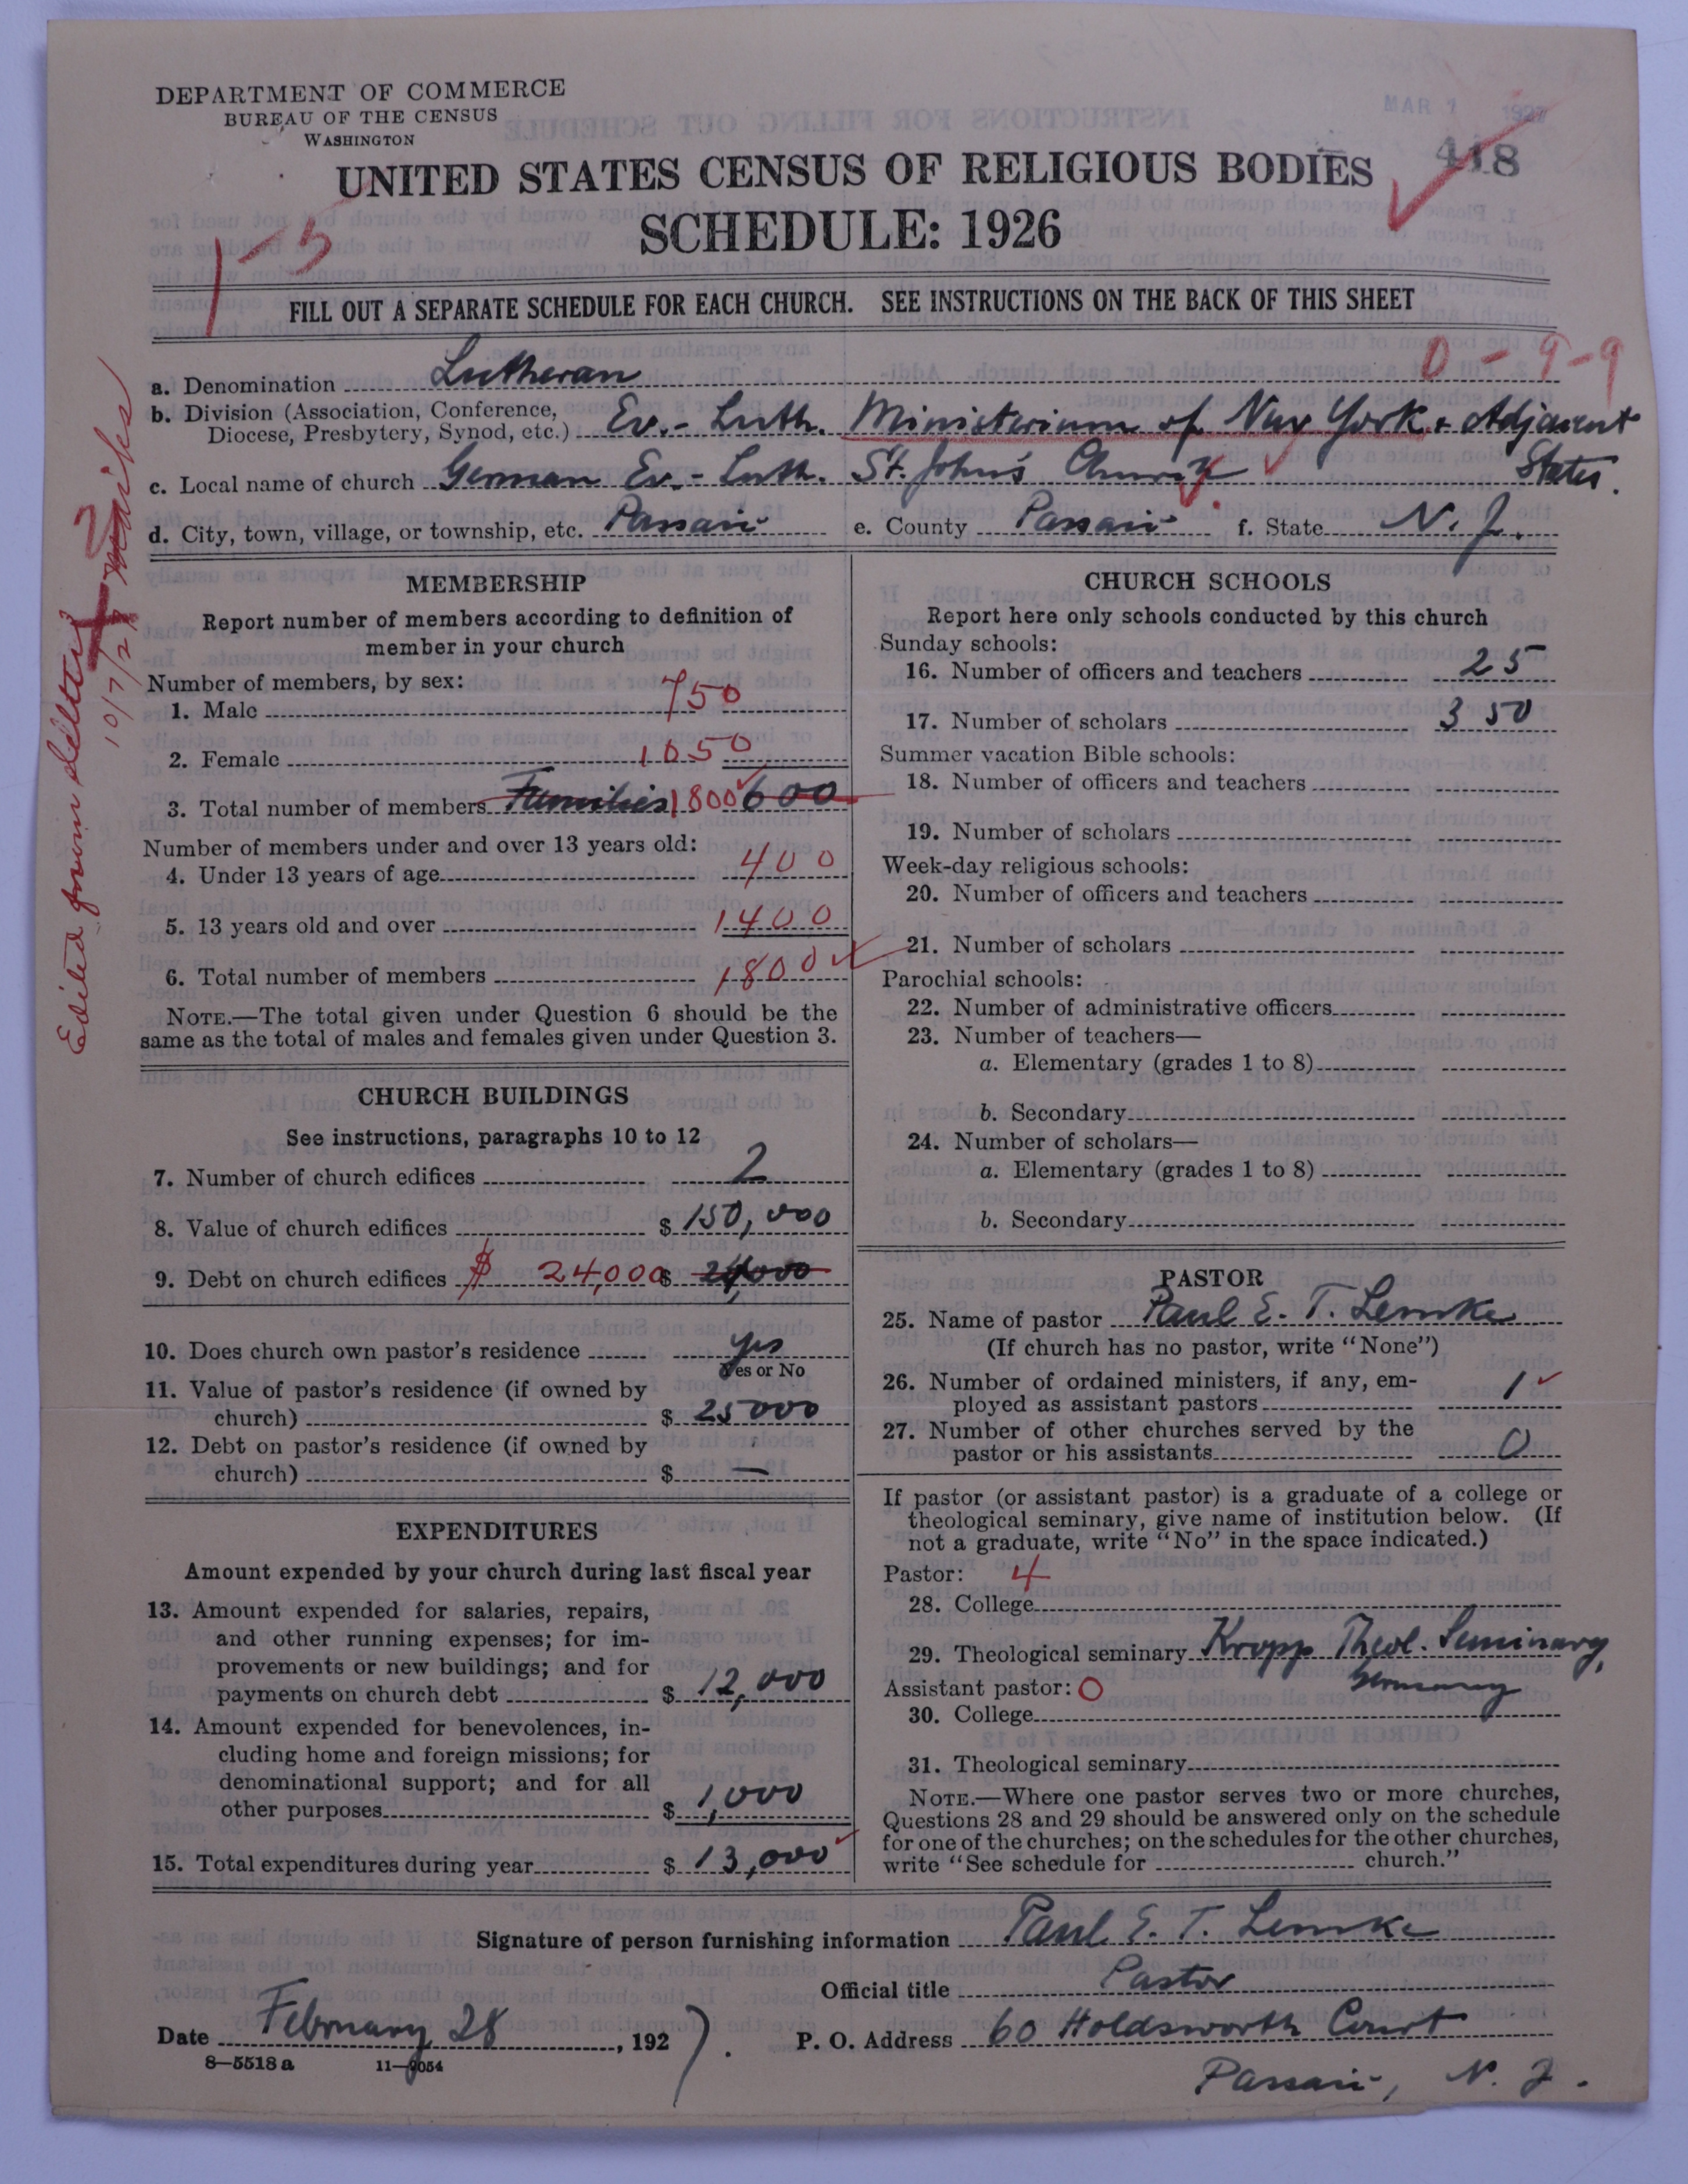 DEPARTMENT OF COMMERCE
BUREAU OF THE CENSUS
WASHINGTON
MAR 1 1927
418
UNITED STATES CENSUS OF RELIGIOUS BODIES
SCHEDULE: 1926
1-5
FILL OUT A SEPARATE SCHEDULE FOR EACH CHURCH. SEE INSTRUCTIONS ON THE BACK OF THIS SHEET
0-9-9
a. Denomination Lutheran
b. Division (Association, Conference, Diocese, Presbytery, Synod, etc.) Ev.-Luth. Ministerium of New York & Adjacent States.
c. Local name of church German Ev.-Luth. St. John's Church
d. City, town, village, or township, etc. Passaic e. County Passaic f. State N. J.
Edited from letter
10/7/27
MEMBERSHIP
Report number of members according to definition of
member in your church
Number of members, by sex:
1. Male 750
2. Female 1050
3. Total number of members Families 1800 600
Number of members under and over 13 years old:
4. Under 13 years of age 400
5. 13 years old and over 1400
6. Total number of members 1800
NOTE.—The total given under Question 6 should be the
same as the total of males and females given under Question 3.
CHURCH BUILDINGS
See instructions, paragraphs 10 to 12
7. Number of church edifices 2
8. Value of church edifices $ 150,000
9. Debt on church edifices $ 24,000 $ 24,000
10. Does church own pastor's residence yes
Yes or No
11. Value of pastor's residence (if owned by
church) $ 25000
12. Debt on pastor's residence (if owned by
church) $ —
EXPENDITURES
Amount expended by your church during last fiscal year
13. Amount expended for salaries, repairs,
and other running expenses; for im-
provements or new buildings; and for
payments on church debt $ 12,000
14. Amount expended for benevolences, in-
cluding home and foreign missions; for
denominational support; and for all
other purposes $ 1,000
15. Total expenditures during year $ 13,000
CHURCH SCHOOLS
Report here only schools conducted by this church
Sunday schools:
16. Number of officers and teachers 25
17. Number of scholars 350
Summer vacation Bible schools:
18. Number of officers and teachers
19. Number of scholars
Week-day religious schools:
20. Number of officers and teachers
21. Number of scholars
Parochial schools:
22. Number of administrative officers
23. Number of teachers—
a. Elementary (grades 1 to 8)
b. Secondary
24. Number of scholars—
a. Elementary (grades 1 to 8)
b. Secondary
PASTOR
25. Name of pastor Paul E. T. Lemke
(If church has no pastor, write "None")
26. Number of ordained ministers, if any, em-
ployed as assistant pastors 1
27. Number of other churches served by the
pastor or his assistants 0
If pastor (or assistant pastor) is a graduate of a college or
theological seminary, give name of institution below. (If
not a graduate, write "No" in the space indicated.)
Pastor: 4
28. College
29. Theological seminary Kropp Theol. Seminary,
Germany
Assistant pastor: 0
30. College
31. Theological seminary
NOTE.—Where one pastor serves two or more churches,
Questions 28 and 29 should be answered only on the schedule
for one of the churches; on the schedules for the other churches,
write "See schedule for church."
Signature of person furnishing information Paul E. T. Lemke
Official title Pastor
Date February 28, 1927. P. O. Address 60 Holdsworth Court
8—5518a 11—9054
Passaic, N. J.